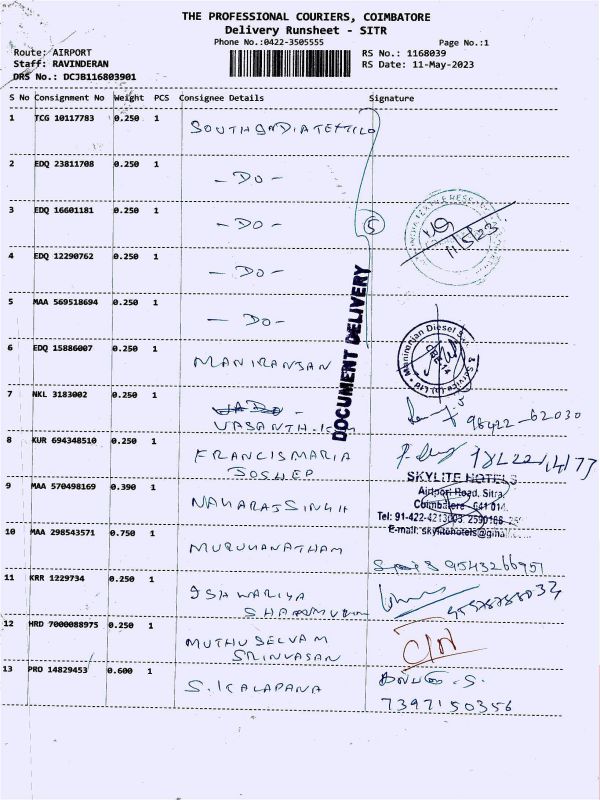 THE PROFESSIONAL COURIERS, COIMBATORE
Delivery Runsheet - SITR
Phone No.:0422-3505555 Page No.:1
Route: AIRPORT RS No.: 1168039
Staff: RAVINDERAN RS Date: 11-May-2023
DRS No.: DCJB116803901
S No Consignment No Weight PCS Consignee Details Signature
1 TCG 10117783 0.250 1
2 EDQ 23811708 0.250 1 - DO -
3 EDQ 16601181 0.250 1 - DO - 5 11/5/23
4 EDQ 12290762 0.250 1 - DO -
5 MAA 569518694 0.250 1 - DO -
DOCUMENT DELIVERY
6 EDQ 15886007 0.250 1 MANIRANJAN
Maniranjan Diesel
7 NKL 3183002 0.250 1 98422-62030
VASANTH.
8 KUR 694348510 0.250 1 FRANCISMARIA
JOSHEP
SKYLITE HOTELS
9 MAA 570498169 0.390 1 Airport Road, Sitra,
Coimbatore - 641 014.
Tel: 91-422-4213003, 2590168
E-mail: skylitehotels@
10 MAA 298543571 0.750 1 MURUHANATHAM
9543266951
11 KRR 1229734 0.250 1 ISHWARIYA
12 HRD 7000088975 0.250 1 MUTHUSELVAM
SRINVASAN
13 PRO 14829453 0.600 1 S. KALAPANA
7397150356